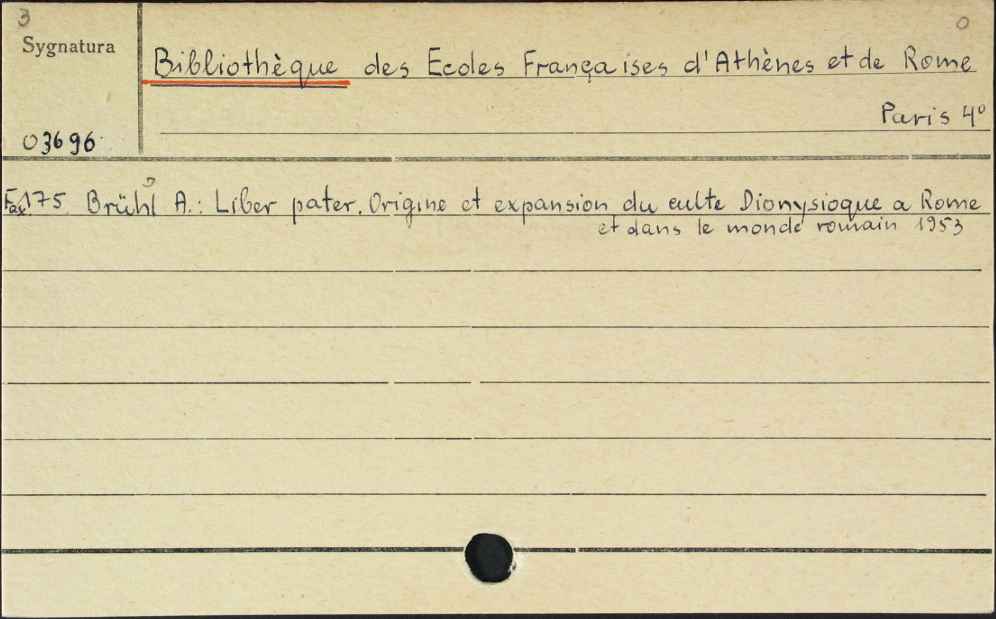 3
0
Sygnatura
Bibliothèque des Ecoles Françaises d'Athènes et de Rome
Paris 4°
03696
Fax.175 Brühl A.: Liber pater. Origine et expansion du culte Dionysioque a Rome
et dans le monde romain 1953